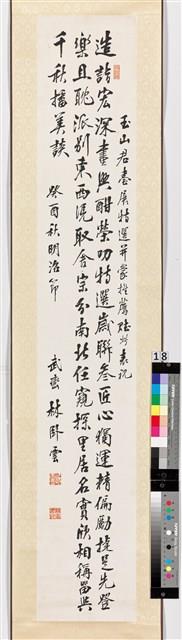 玉山君臺展特選并蒙推薦短此表祝
造詣宏深畫興酣榮叨特選歲聯叁匠心獨運精偏勵捷足先登
樂且耽派別東西凭取舍宗分南北任窺探里居名實欣相稱留與
千秋播美談
癸酉秋明治節
武崗林臥雲
18